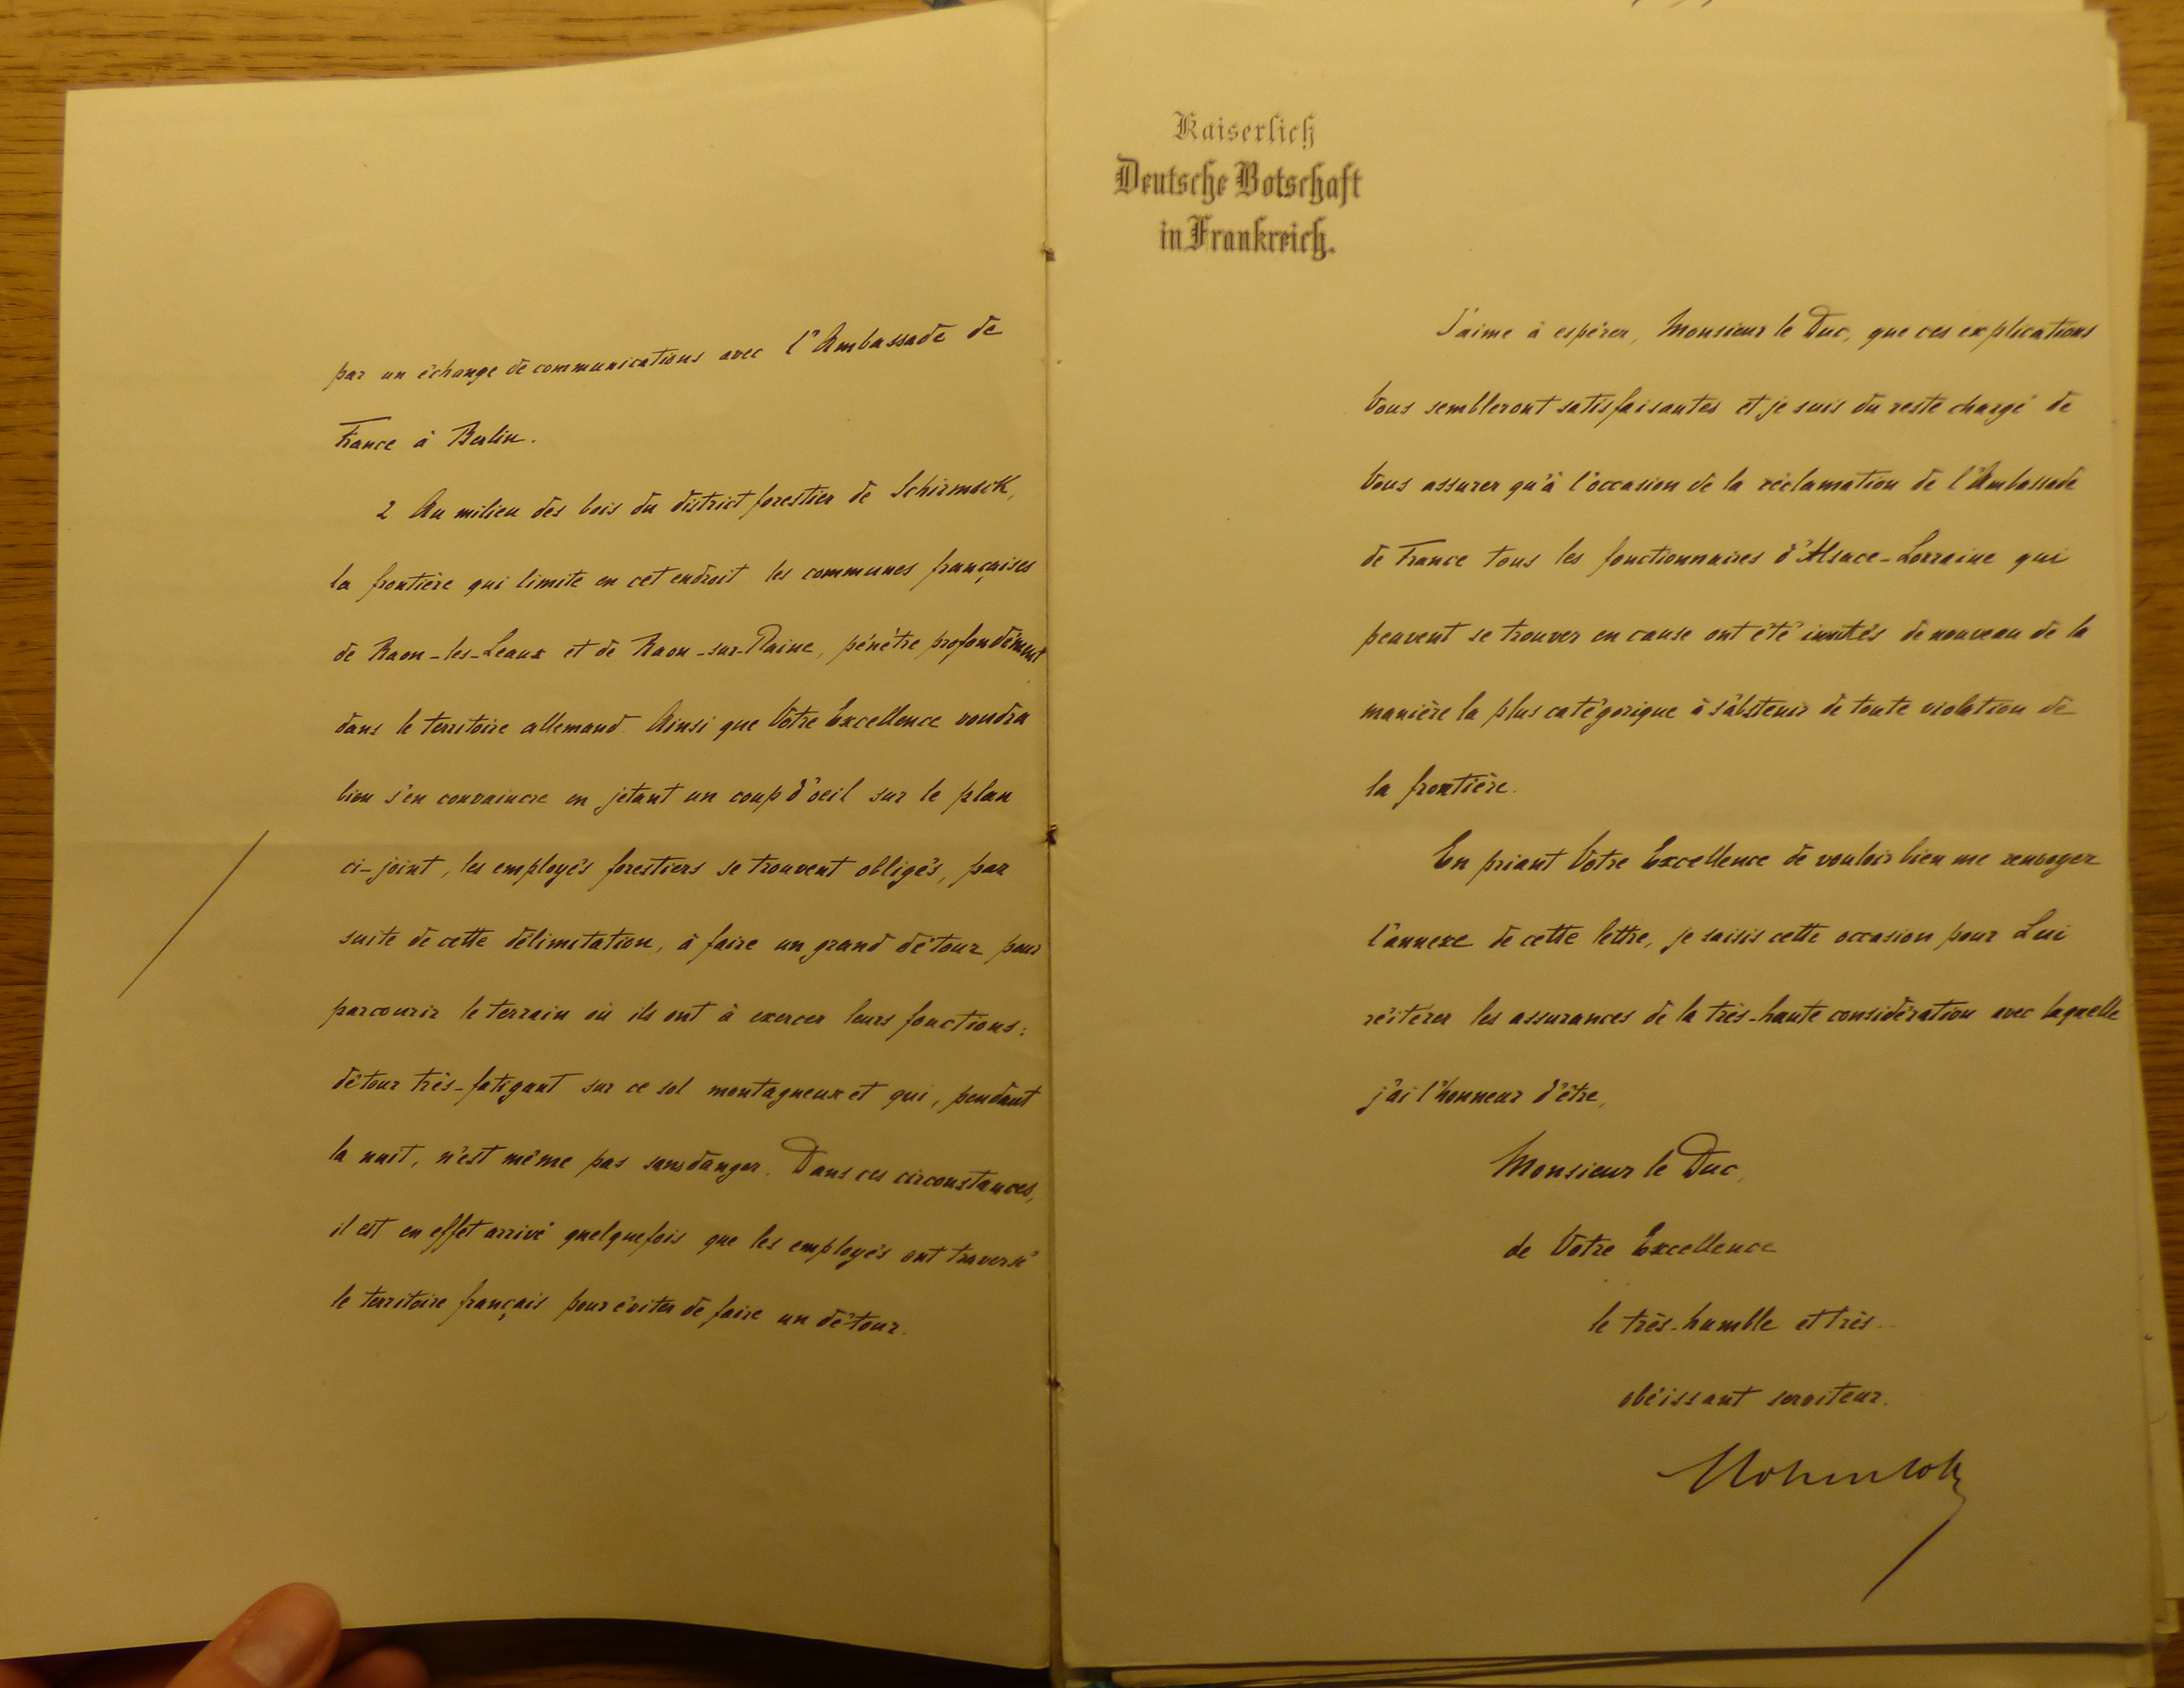 par un échange de communications avec l'Ambassade de
France à Berlin.
2 Au milieu des bois du district forestier de Schirmeck,
la frontière qui limite en cet endroit les communes françaises
de Raon-les-Leaux et de Raon-sur-Plaine, pénètre profondément
dans le territoire allemand. Ainsi que Votre Excellence voudra
bien s'en convaincre en jetant un coup d'oeil sur le plan
ci-joint, les employés forestiers se trouvent obligés, par
suite de cette délimitation, à faire un grand détour pour
parcourir le terrain où ils ont à exercer leurs fonctions:
détour très-fatigant sur ce sol montagneux et qui, pendant
la nuit, n'est même pas sans danger. Dans ces circonstances,
il est en effet arrivé quelquefois que les employés ont traversé
le territoire français pour éviter de faire un détour.
Kaiserlich
Deutsche Botschaft
in Frankreich.
J'aime à espérer, Monsieur le Duc, que ces explications
Vous sembleront satisfaisantes et je suis du reste chargé de
Vous assurer qu'à l'occasion de la réclamation de l'Ambassade
de France tous les fonctionnaires d'Alsace-Lorraine qui
peuvent se trouver en cause ont été invités de nouveau de la
manière la plus catégorique à s'abstenir de toute violation de
la frontière.
En priant Votre Excellence de vouloir bien me renvoyer
l'annexe de cette lettre, je saisis cette occasion pour Lui
réitérer les assurances de la très-haute considération avec laquelle
j'ai l'honneur d'être,
Monsieur le Duc,
de Votre Excellence
le très-humble et très-
obéissant serviteur.
Hohenlohe